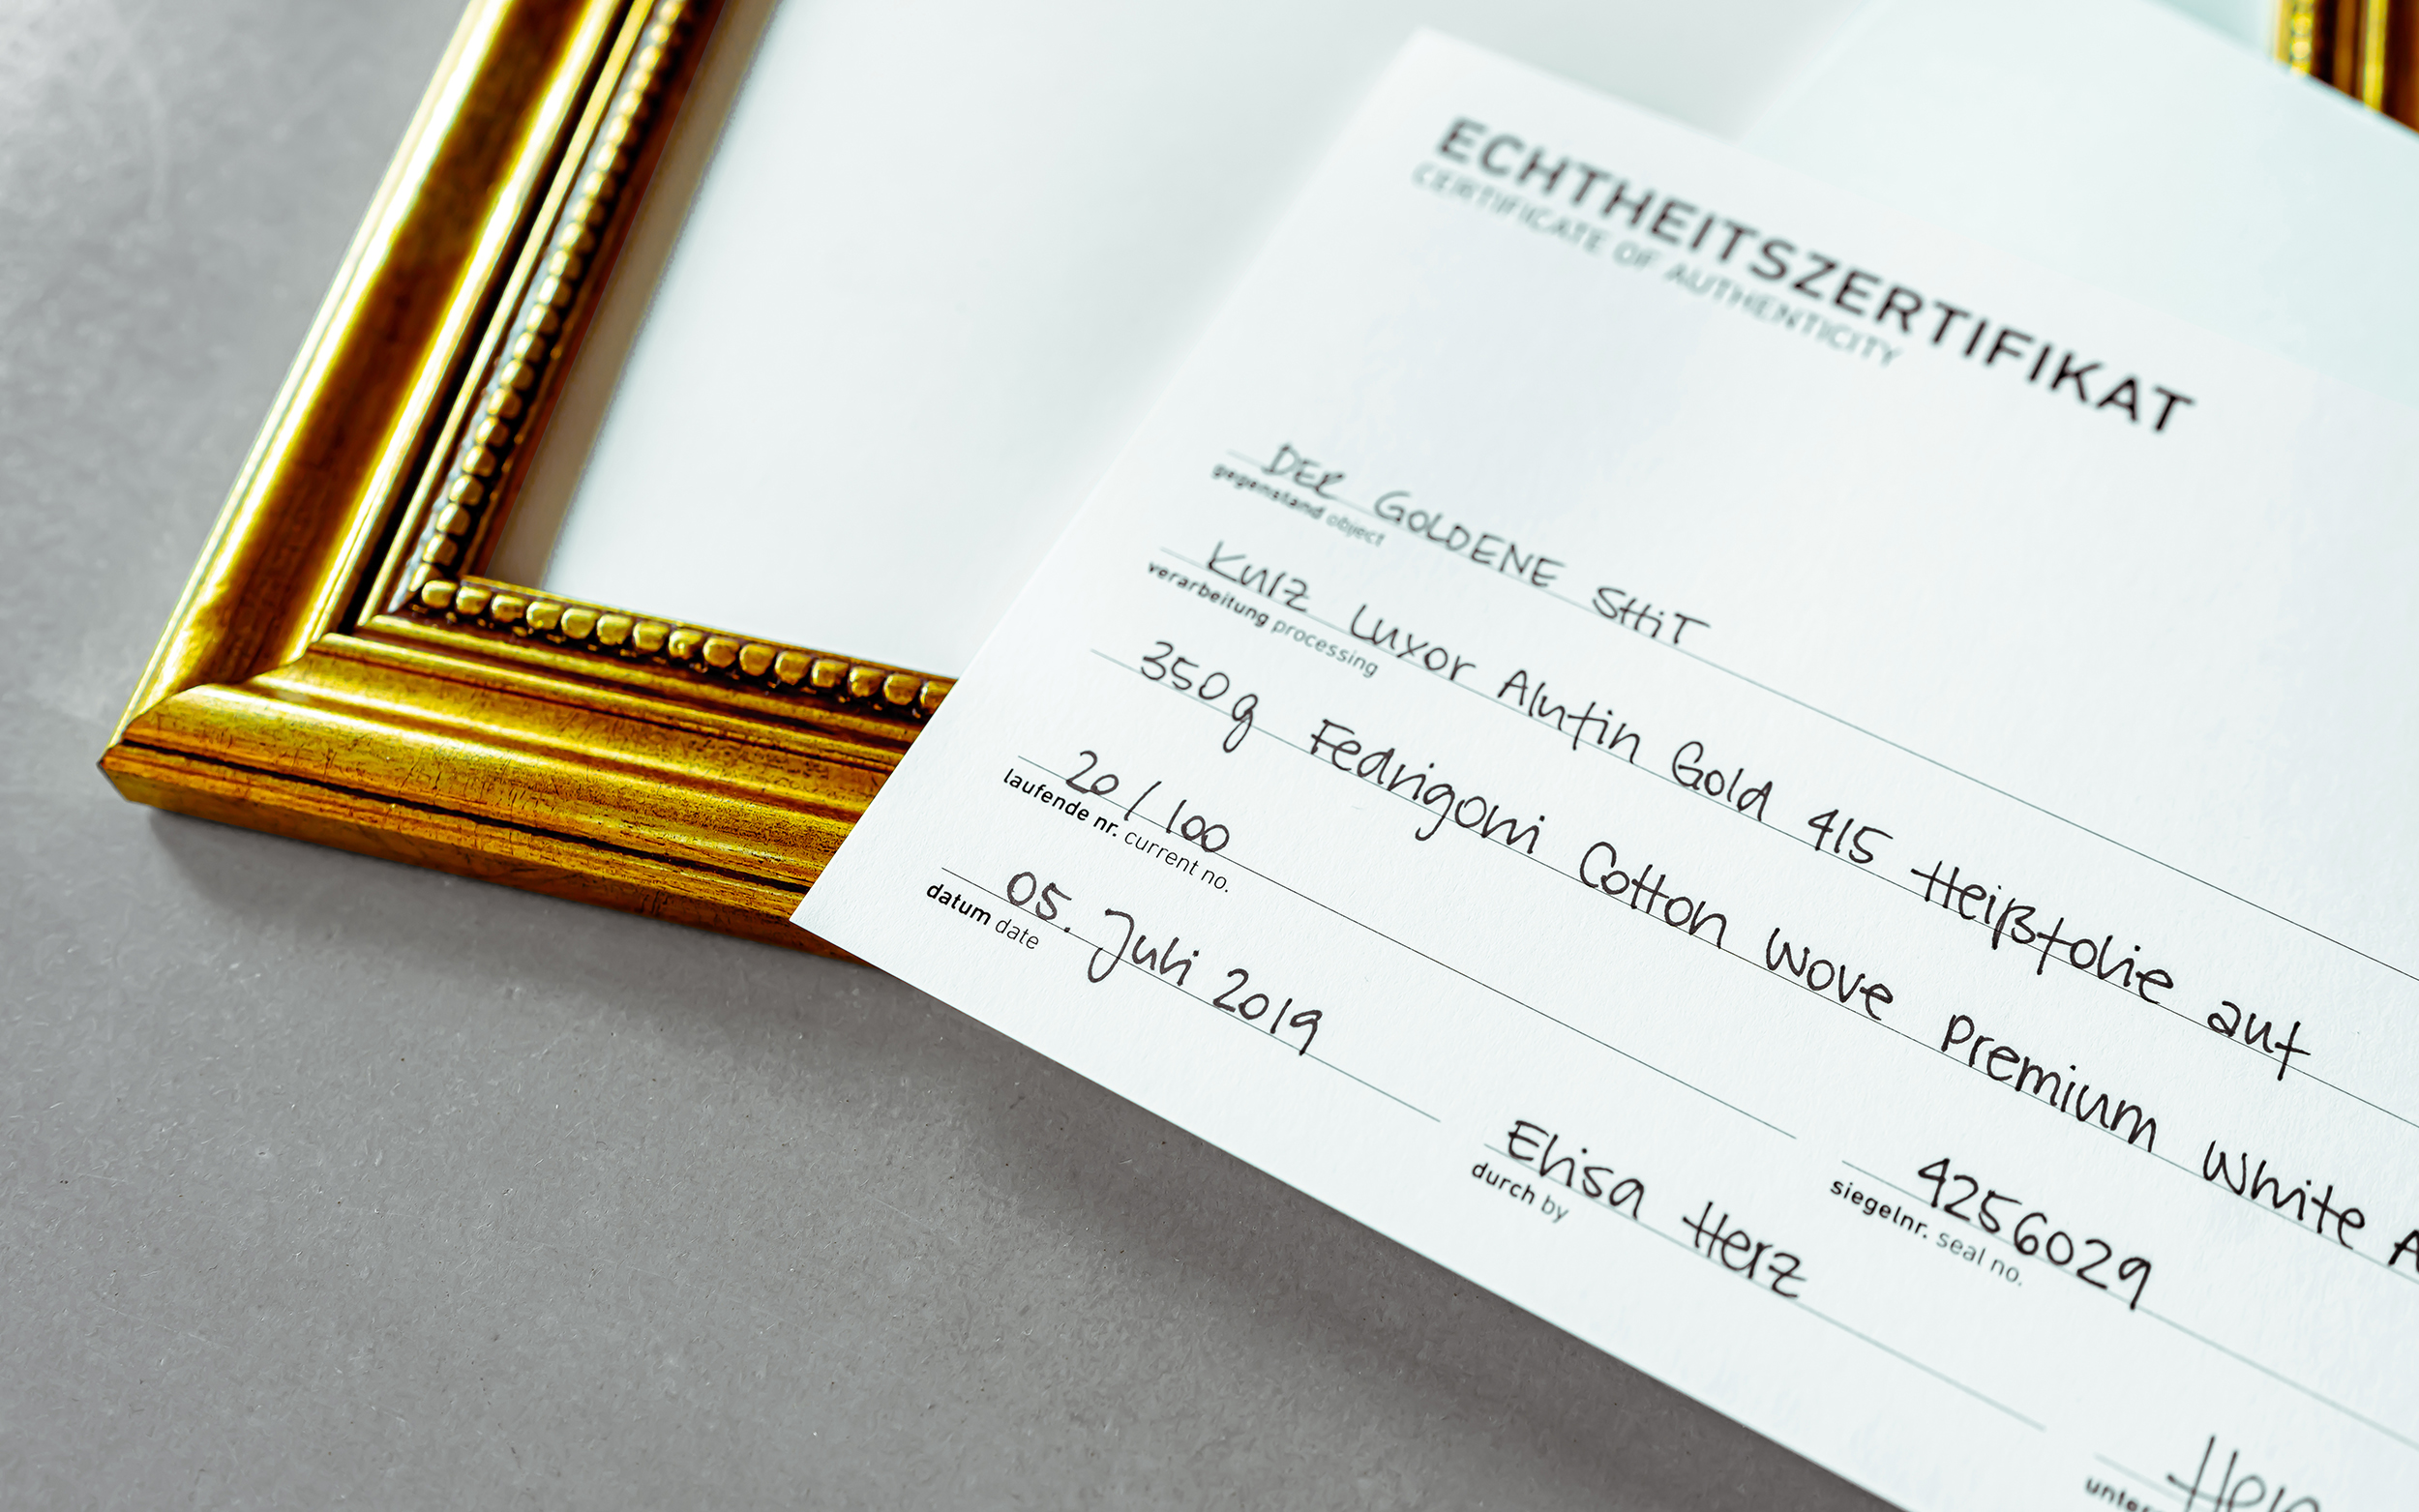 ECHTHEITSZERTIFIKAT
CERTIFICATE OF AUTHENTICITY
DER GOLDENE SHiT
gegenstand object
Kurz Luxor Alufin Gold 415 Heißfolie auf
verarbeitung processing
350g Fedrigoni Cotton wove premium White
20/100
laufende nr. current no.
4256029
siegelnr. seal no.
05. Juli 2019
datum date
Elisa Herz
durch by